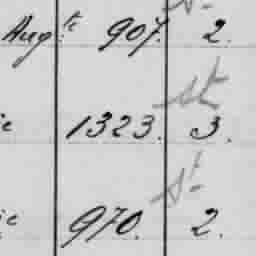 Aug.te 907. 2.
ic 1323. 3.
ic 970. 2.